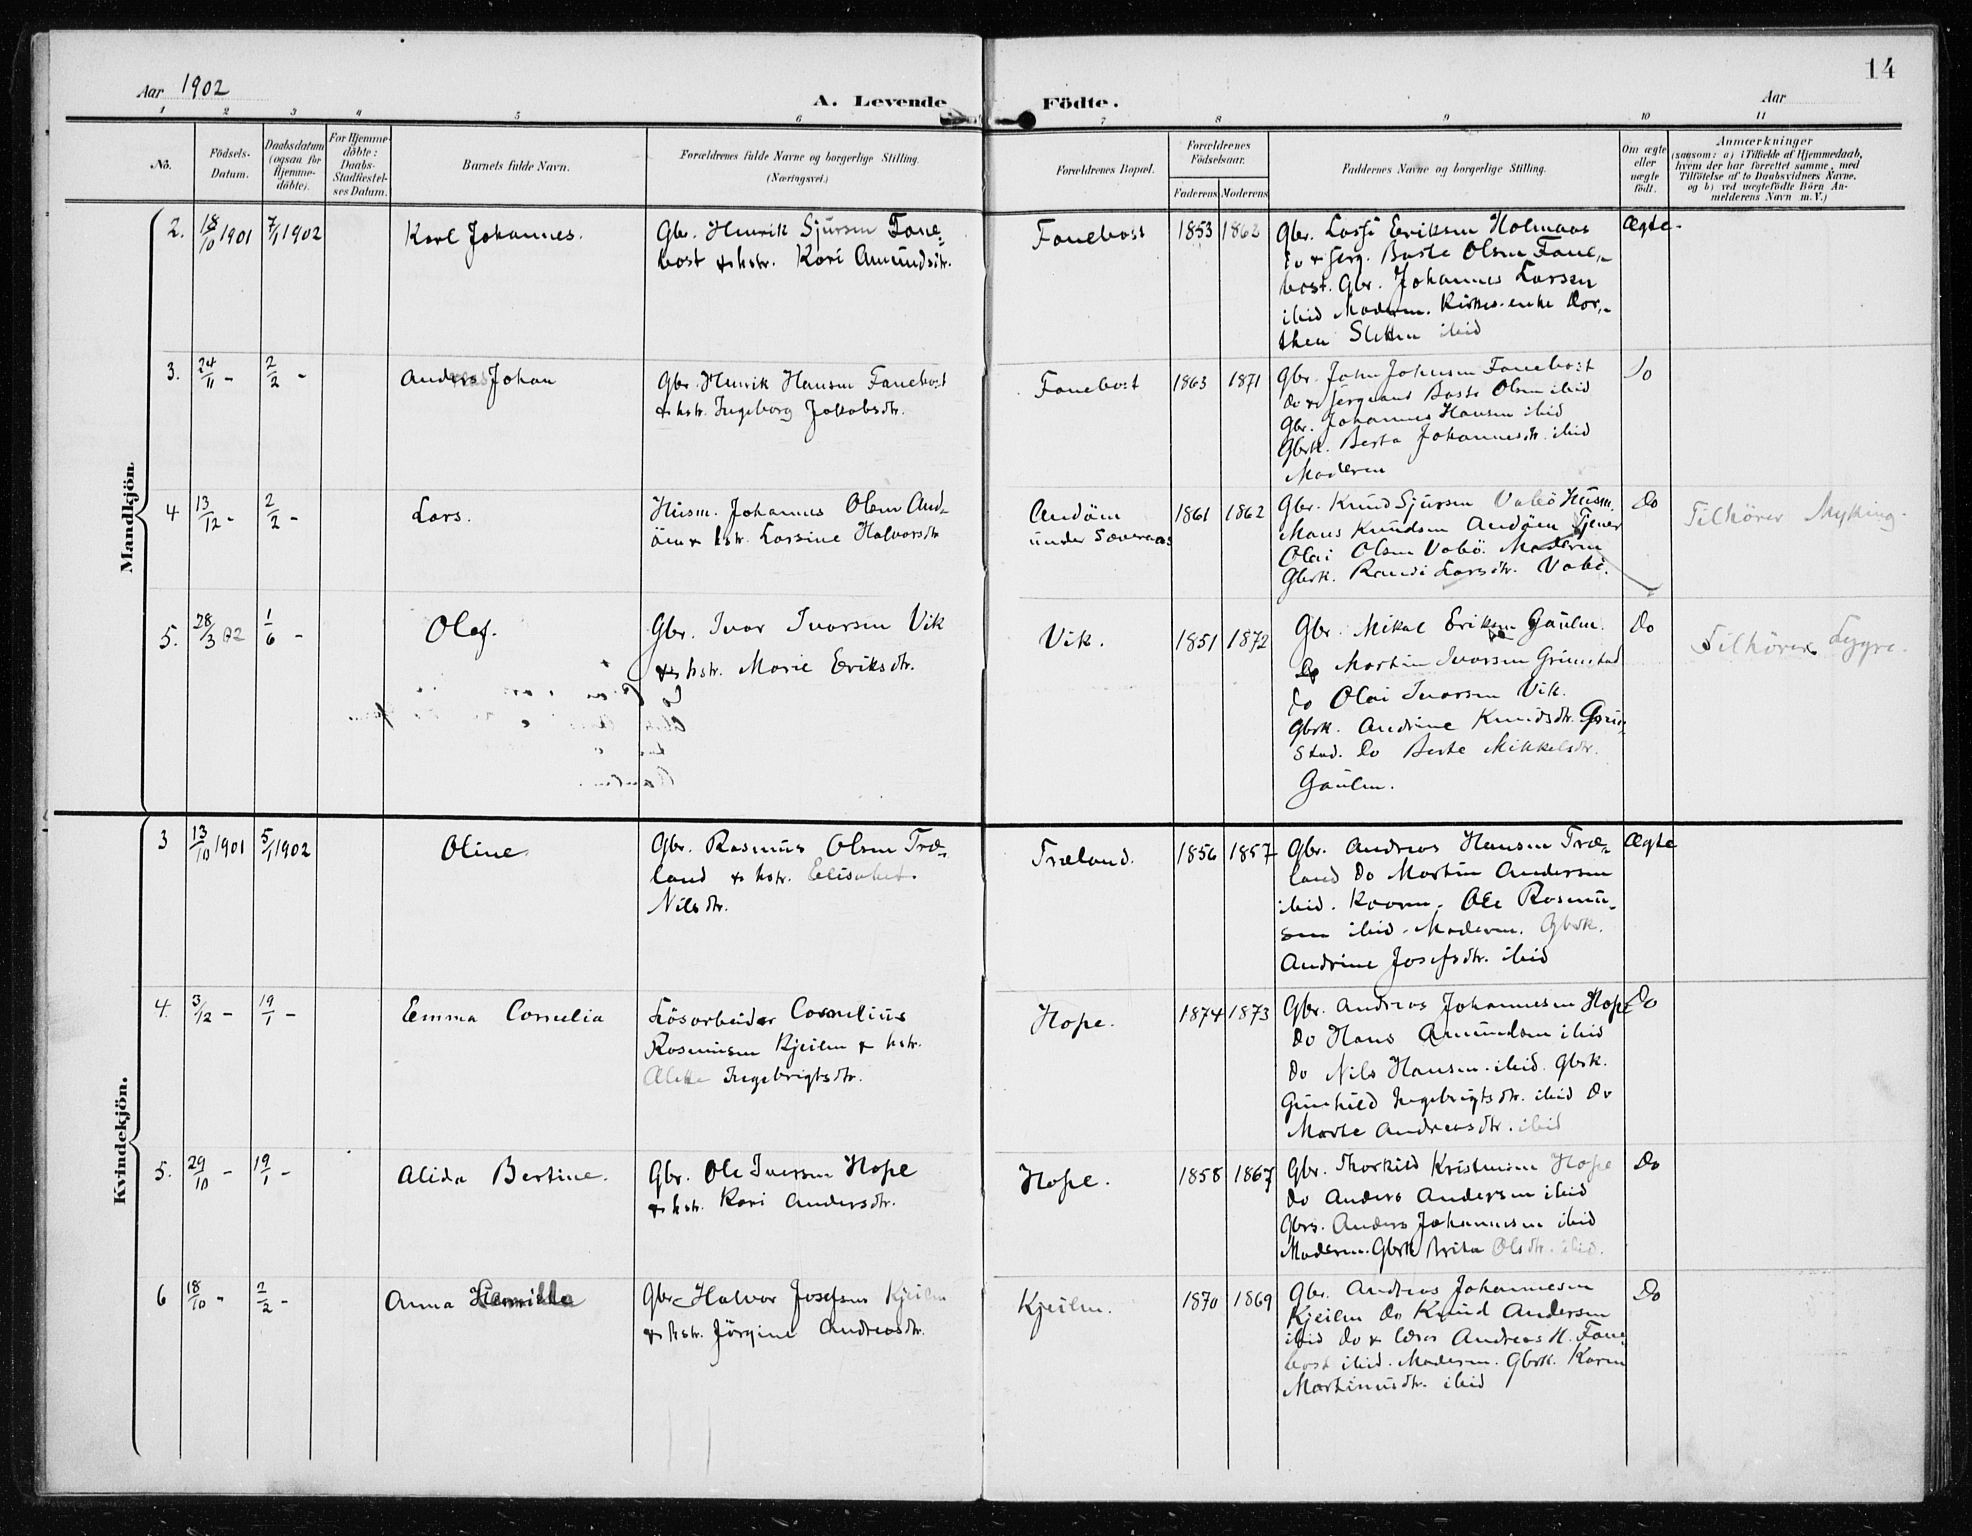 Aar 1902
A. Levende Födte.
Aar
14
1 2 3 4 5 6 7 8 9 10 11
No.
Födsels-Datum.
Daabsdatum (ogsaa for Hjemme-döbte).
For Hjemme-döbte: Daabs-Stadfæstel-ses Datum.
Barnets fulde Navn.
Forældrenes fulde Navne og borgerlige Stilling. (Næringsvei.)
Forældrenes Bopæl.
Forældrenes Födselsaar.
Faderens Moderens
Faddernes Navne og borgerlige Stilling.
Om ægte eller uægte födt.
Anmærkninger
(saasom: a) i Tilfælde af Hjemmedaab, hvem der har forrettet samme, med Tilföielse af to Daabsvidners Navne, og b) ved uægtefödte Börn An-melderens Navn m. V.)
Mandkjön.
2. 18/10 1901 7/1 1902
Karl Johannes.
Gbr. Henrik Sjursen Fane-
bost & hstr. Kari Amundsdtr.
Fanebost
1853 1862
Gbr. Lasse Eriksen Holmaas
Do & serg. Baste Olsen Fane-
bost. Gbr. Johannes Larsen
ibid Moderen. Kirkes. enke Dor-
thea Sletten ibid
Ægte
3. 24/11 - 2/2 -
Johan
Gbr. Henrik Hansen Fanebost
& hstr. Ingeborg Jakobsdtr.
Fanebost
1863 1871
Gbr. John Johnsen Fanebost
Do & sergeant Baste Olsen ibid
Gbr. Johannes Hansen ibid
Gbrk. Berta Johannesdtr. ibid
Moderen
Do
4 13/12 - 2/2 -
Lars.
Husm. Johannes Olsen And-
öen & hstr. Larsine Halvorsdtr
Andöen
under Sæveraas
1861 1862
Gbr. Knud Sjursen Vabö Husm.
Mons Knudsen Andöen Tjener
Olai Olsen Vabö. Moderen
Gbrk. Randi Larsdtr. Vabö.
Do
Tilhörer Myking.
5. 28/3 02 1/6 -
Olaf.
Gbr. Ivar Ivarsen Vik
& hstr. Marie Eriksdtr.
Vik.
1851 1872
Gbr. Mikal Eriksen Gaulen.
Do Martin Ivarsen Grimstad
Do Olai Ivarsen Vik.
Gbrk. Andrine Knudsdtr. Grim-
stad. Do Berte Mikkelsdtr.
Gaulen.
Do
Tilhörer Lygre.
Kvindekjön.
3 13/10 1901 5/1 1902
Oline
Gbr. Rasmus Olsen Træ-
land & hstr. Elisabet
Nilsdtr.
Træland.
1856 1857
Gbr. Andreas Hansen Træ-
land Do Martin Andersen
ibid. Kaarm. Ole Rasmu-
sen ibid. Moderen. Gbrk.
Andrine Josefsdtr. ibid
Ægte
4. 3/12 - 19/1 -
Emma Cornelia
Lösarbeider Cornelius
Rasmusen Kjeilen & hstr.
Alette Ingebrigtsdtr.
Hope.
1874 1873
Gbr. Andreas Johannesen Hope
Do Hans Amundsen ibid
Do Nils Hansen. ibid. Gbrk.
Gunhild Ingebrigtsdtr. ibid Do
Marte Andreasdtr. ibid
Do
5. 29/10 - 19/1 -
Alida Bertine.
Gbr. Ole Iversen Hope
& hstr. Kari Andersdtr.
Hope.
1858 1867
Gbr. Thorkild Kristensen Hope
Do Anders Andersen ibid
Gbrs. Anders Johannesen ibid
Moderen. Gbrk Brita Olsdtr. ibid.
Do
6 18/10 - 2/2 -
Anna
Gbr Halvor Josefsen Kjeilen
& hstr. Jörgine Andreasdtr.
Kjeilen.
1870 1869
Gbr. Andreas Johannesen
Kjeilen Do Knud Andersen
ibid Do & lærer Andreas H. Fane-
bost ibid. Moderen. Gbrk. Karen
Martinusdtr. ibid
Do